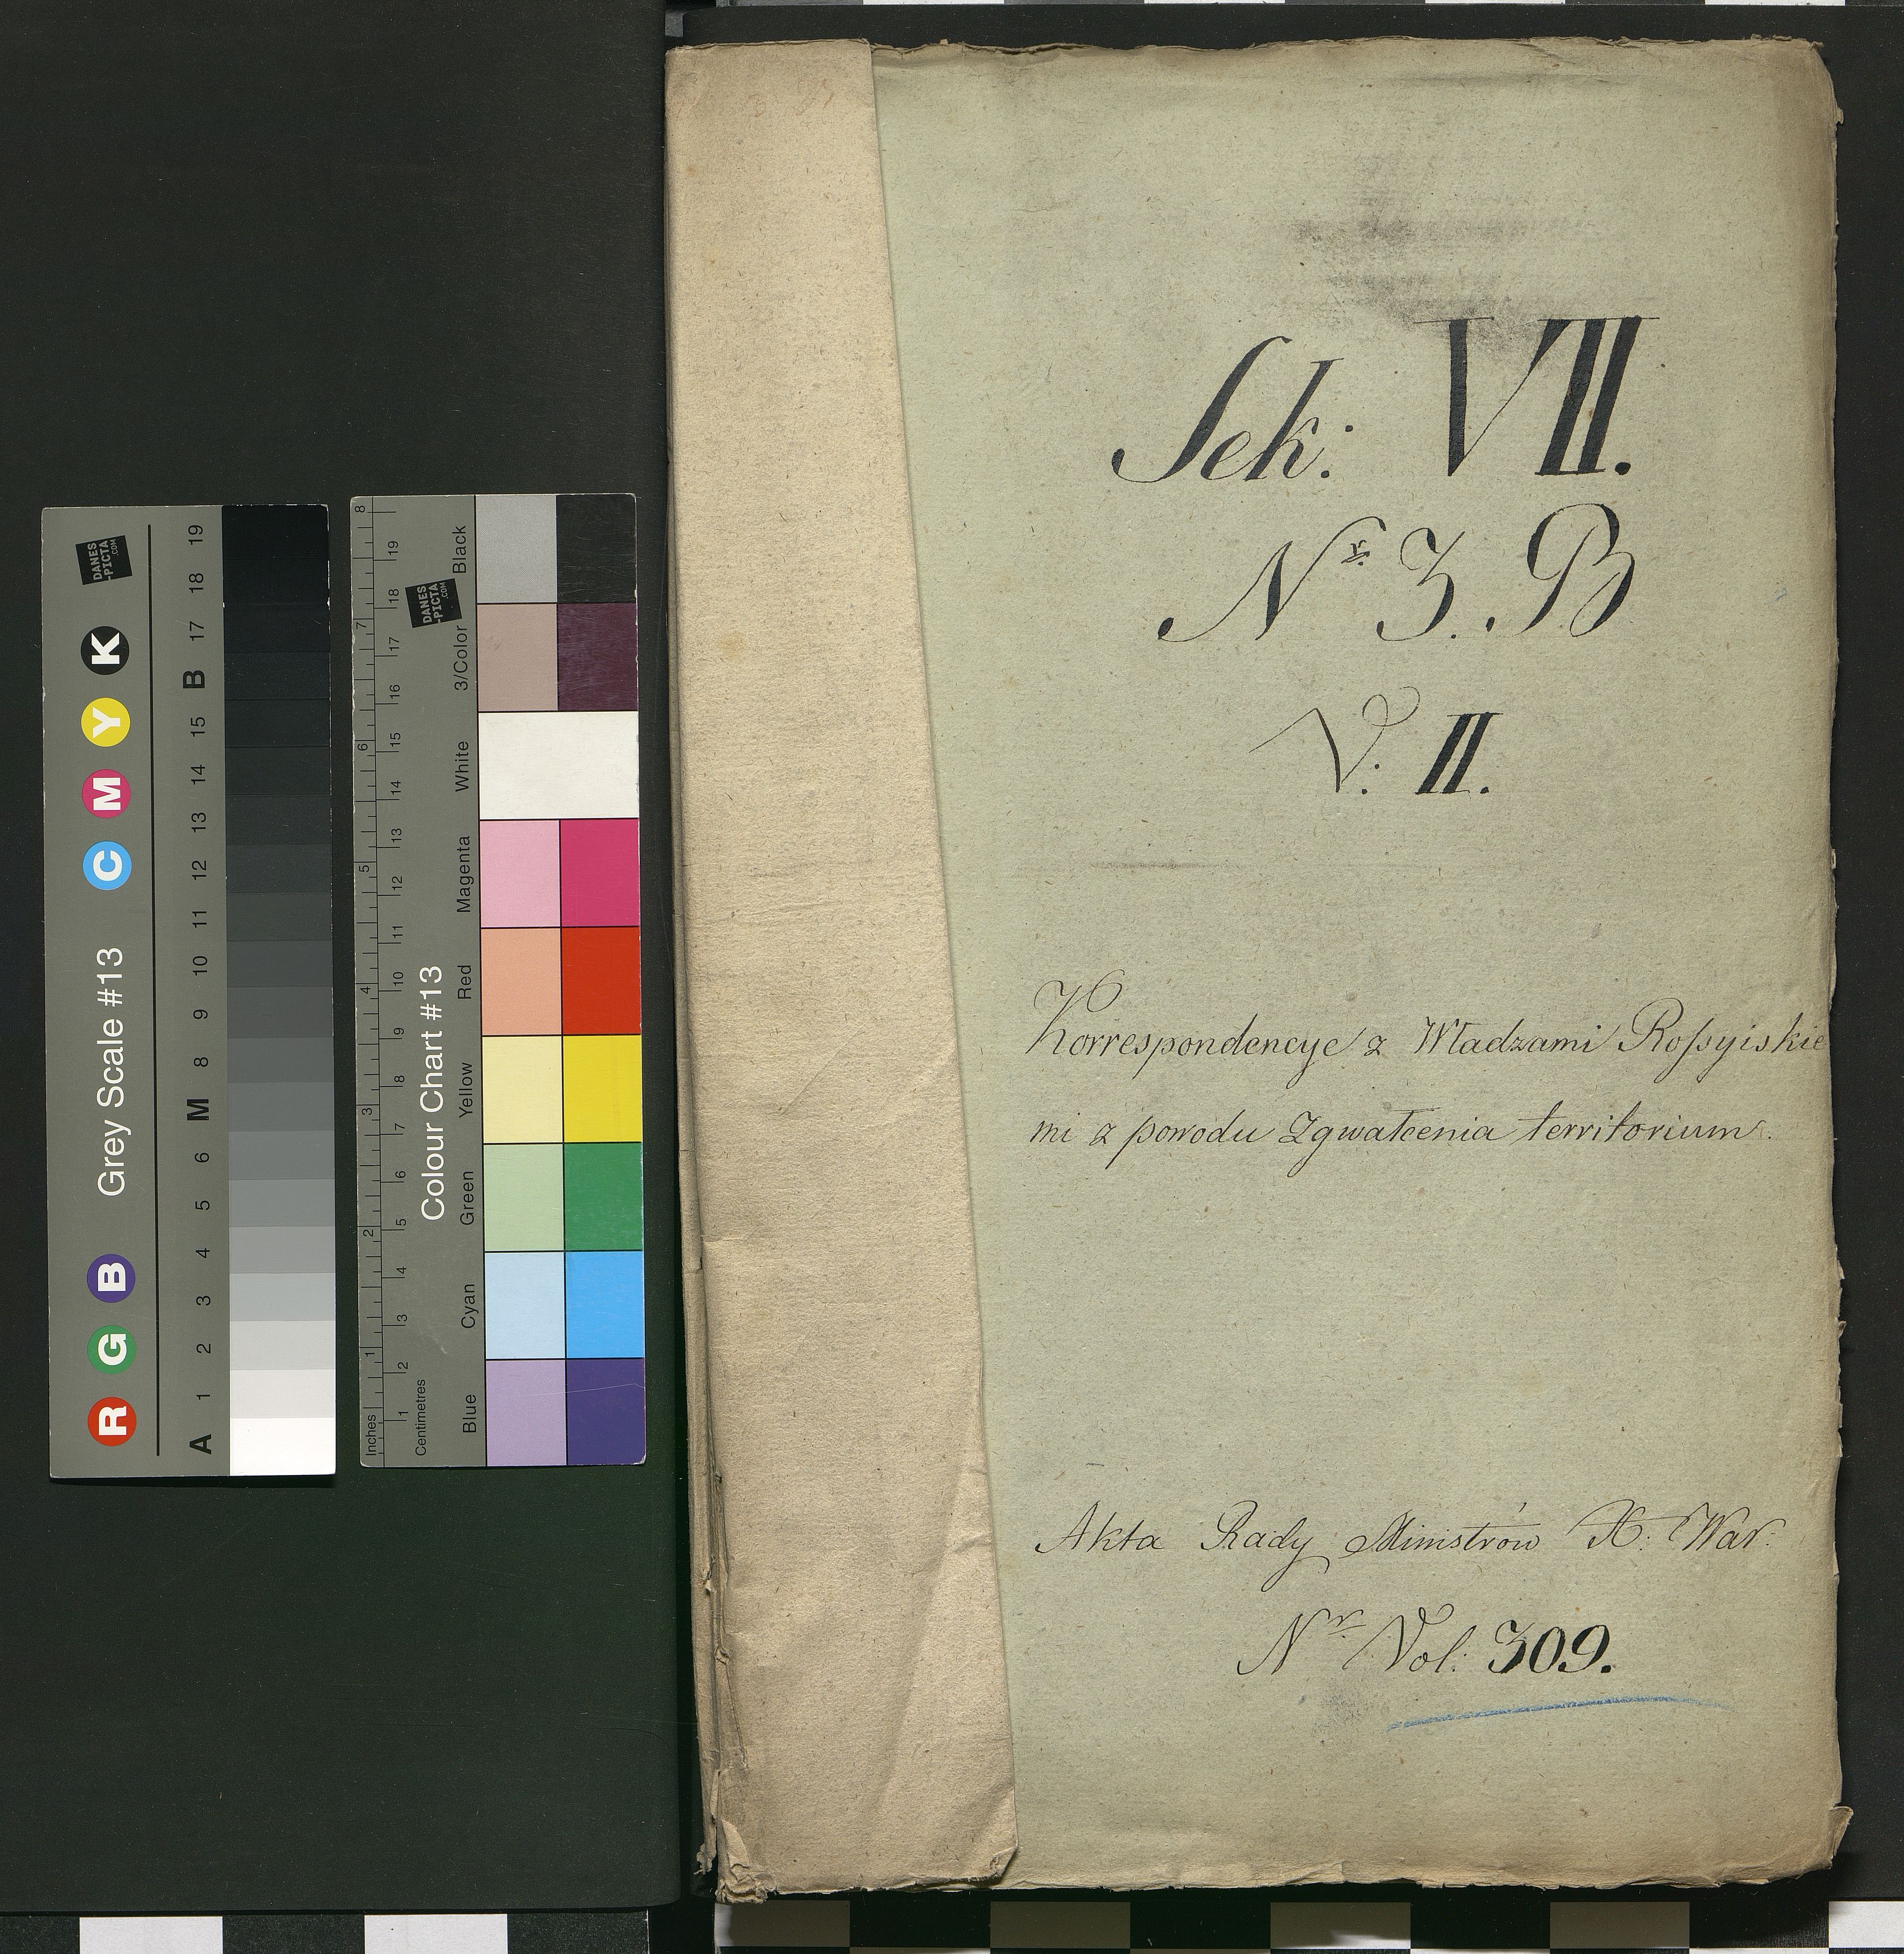 Sek: VII.
Nr. 3. B
V: II.
Korrespondencye z Władzami Rossyiskie
mi z powodu Zgwałcenia territorium.
Akta Rady Ministrów X: War:
Nr. Vol: 309.
Grey Scale #13
R G B C M Y K
DANES
-PICTA
.COM
A 1 2 3 4 5 6 M 8 9 10 11 12 13 14 15 B 17 18 19
Colour Chart #13
DANES
-PICTA
.COM
Blue Cyan Green Yellow Red Magenta White 3/Color Black
Inches 1 2 3 4 5 6 7 8
Centimetres 1 2 3 4 5 6 7 8 9 10 11 12 13 14 15 16 17 18 19